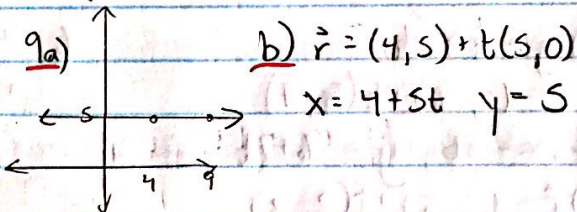 9a)
5
4 9
b) r⃗ = (4,5) + t(5,0)
x = 4 + 5t y = 5